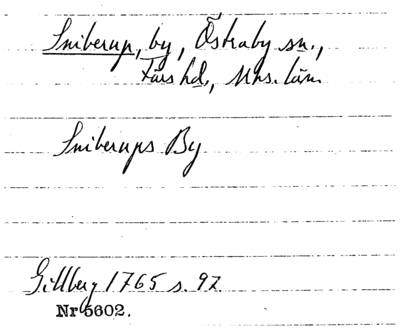 Sniberup, by, Östraby sn.,
Färs hd., Mhs. län.
Sniberups By
Gillberg 1765 s. 92
Nr 5602.